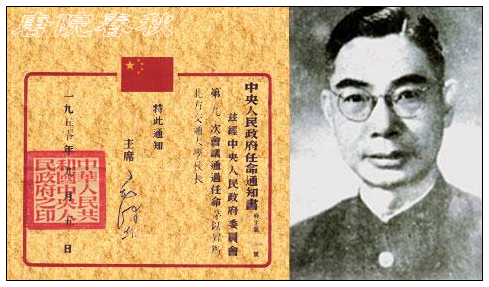 唐院春秋
中央人民政府任命通知書
茲經中央人民政府委員會
第九次會議通過任命茅以昇爲
北方交通大學校長
特此通知
主席
一九五〇年九月 日
中華人民共
和國中央人
民政府之印